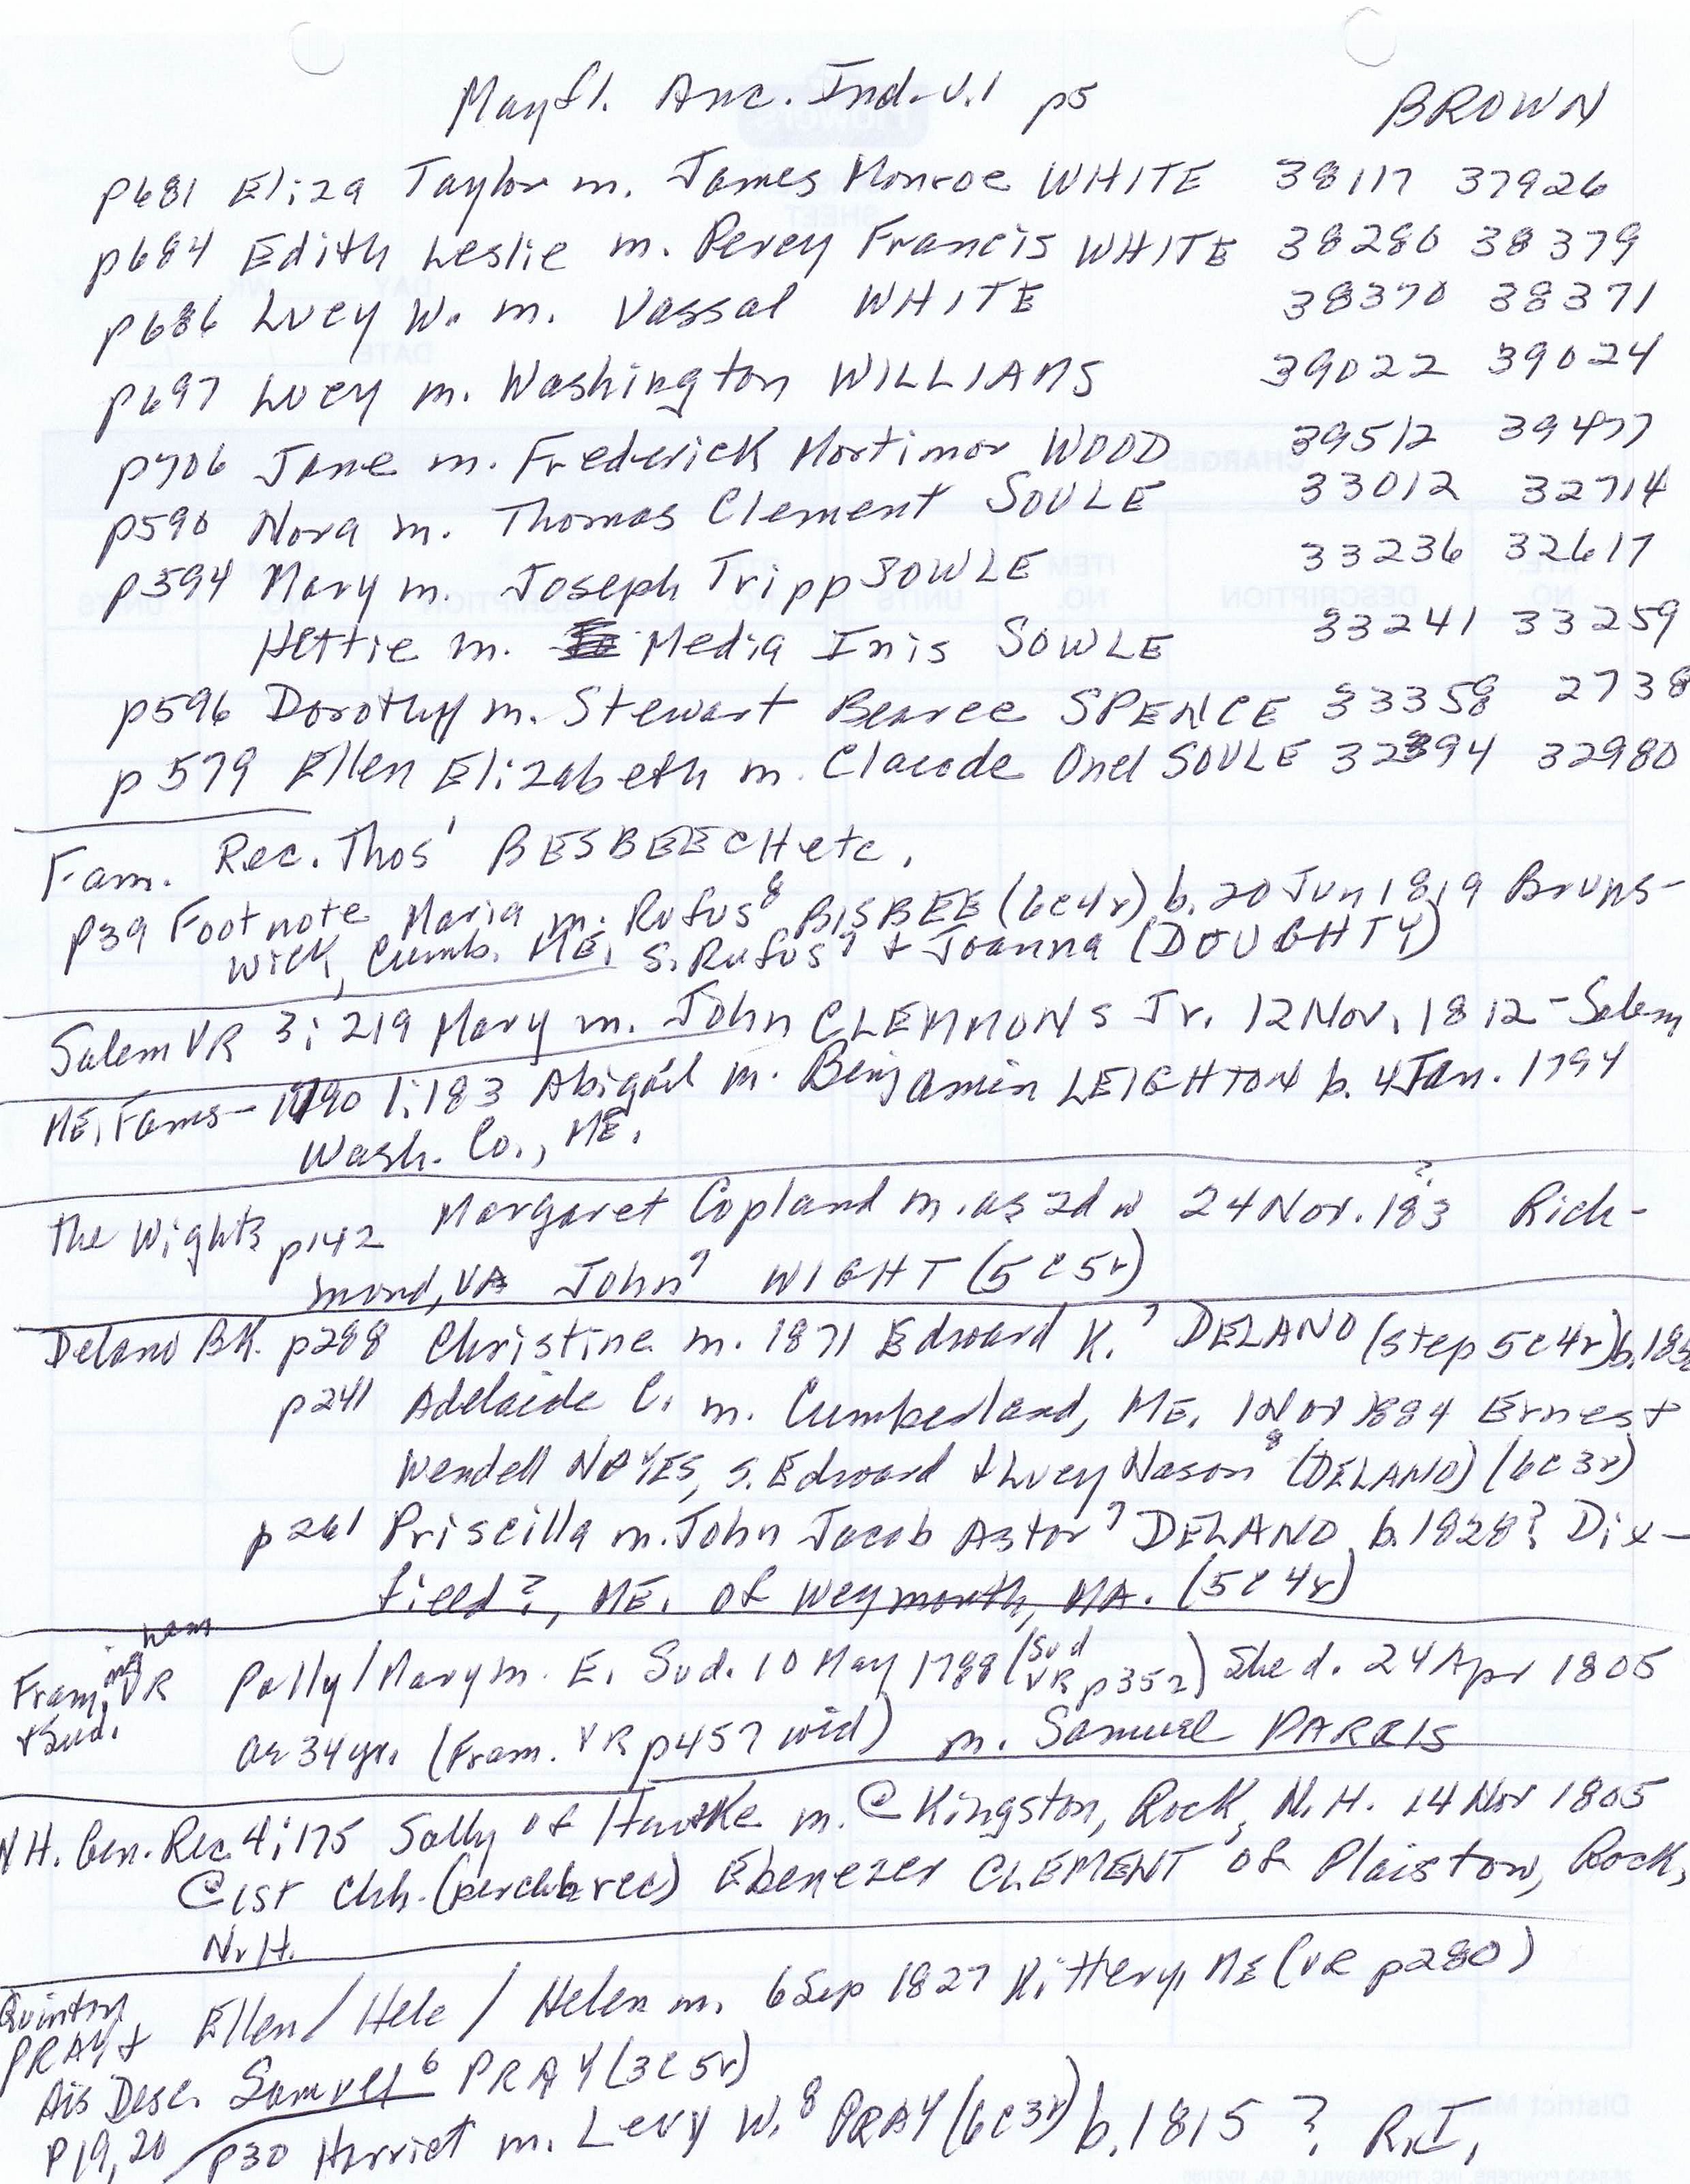 Mayfl. Anc. Ind. v.1 p5 BROWN
p681 Eliza Taylor m. James Monroe WHITE 38117 37926
p684 Edith Leslie m. Percy Francis WHITE 38280 38379
p686 Lucy W. m. Vassal WHITE 38370 38371
p697 Lucy m. Washington WILLIAMS 39022 39024
p706 Jane m. Frederick Mortimor WOOD 39512 39477
p590 Nora m. Thomas Clement SOULE 33012 32714
p594 Mary m. Joseph Tripp SOWLE 33236 32617
Hettie m. Media Inis SOWLE 33241 33259
p596 Dorothy m. Stewart Bearce SPENCE 33358 2738
p579 Ellen Elizabeth m. Claude Onel SOULE 32894 32980
Fam. Rec. Thos' BESBEECH etc.
p39 Footnote Maria m. Rufus⁸ BISBEE (6c4r) b. 20 Jun 1819 Bruns-
wick, Cumb. ME. s. Rufus⁷ + Joanna (DOUGHTY)
Salem VR 3:219 Mary m. John CLEMMONS Jr. 12 Nov. 1812 - Salem
ME. Fams - 1790 1:183 Abigail m. Benjamin LEIGHTON b. 4 Jan. 1794
Wash. Co., ME.
The Wights p142 Margaret Copland m. as 2d w 24 Nov. 183? Rich-
mond, VA John⁷ WIGHT (5c5r)
Delano BK. p288 Christine m. 1871 Edward K.⁷ DELANO (step 5c4r) b. 185
p241 Adelaide C. m. Cumberland, ME. 1 Nov 1884 Ernest
Wendell NOYES, s. Edward + Lucy Nason⁸ (DELANO) (6c3r)
p261 Priscilla m. John Jacob Astor⁷ DELANO b. 1828? Dix-
field?, ME. of Weymouth, MA. (5c4r)
Framingham VR + Sud. Polly/Mary m. E. Sud. 10 May 1788 (Sud VR p352) She d. 24 Apr 1805
ae 34 yr. (Fram. VR p457 wid) m. Samuel PARRIS
NH. Gen. Rec. 4:175 Sally of Hawke m. @ Kingston, Rock, N.H. 14 Nov 1805
@ 1st Chh. (per chh rec) Ebenezer CLEMENT of Plaistow, Rock,
N.H.
Quinton PRAY + Ellen/Hele/Helen m. 6 Sep 1827 Kittery, ME (VR p280)
His Desc. Samuel⁶ PRAY (3c5r)
p19,20 p30 Harriet m. Levy W.⁸ PRAY (6c3r) b. 1815 ? R.I.